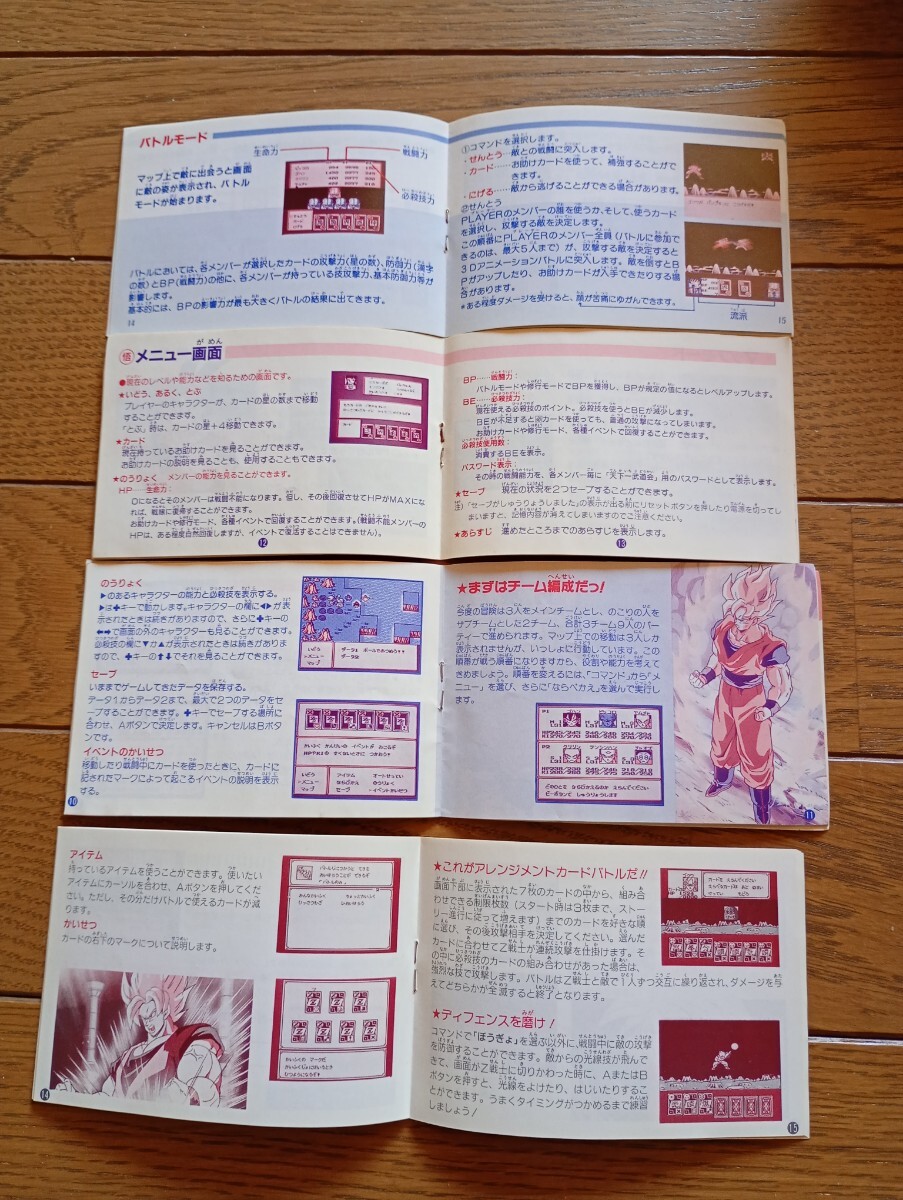 バトルモード
生命力
戦闘力
必殺技力
マップ上で敵に出会うと画面
に敵の姿が表示され、バトル
モードが始まります。
バトルにおいては、各メンバーが選択したカードの攻撃力(星の数)、防御力(漢字
の数)とBP(戦闘力)の他に、各メンバーが持っている技攻撃力、基本防御力等が
影響します。
基本的には、BPの影響力が最も大きくバトルの結果に出てきます。
14
①コマンドを選択します。
・せんとう…敵との戦闘に突入します。
・カード……お助けカードを使って、補強することがで
きます。
・にげる……敵から逃げることができる場合があります。
②せんとう
PLAYERのメンバーの誰を使うか、そして、使うカード
を選択し、攻撃する敵を決定します。
この順番にPLAYERのメンバー全員(バトルに参加で
きるのは、最大5人まで)が、攻撃する敵を決定すると
3Dアニメーションバトルに突入します。敵を倒すとB
Pがアップしたり、お助けカードが入手できたりする場
合があります。
*ある程度ダメージを受けると、顔が苦痛にゆがんできます。
流派
15
悟 メニュー画面
●現在のレベルや能力などを知るための画面です。
★いどう、あるく、とぶ
プレイヤーのキャラクターが、カードの星の数まで移動
することができます。
「とぶ」時は、カードの星+4移動できます。
★カード
現在持っているお助けカードを見ることができます。
お助けカードの説明を見ることも、使用することもできます。
★のうりょく メンバーの能力を見ることができます。
HP……生命力:
0になるとそのメンバーは戦闘不能になります。但し、その後回復させてHPがMAXにな
れば、戦線に復帰することができます。
お助けカードや修行モード、各種イベントで回復することができます。(戦闘不能メンバーの
HPは、ある程度自然回復しますが、イベントで復活することはできません)。
12
BP……戦闘力:
バトルモードや修行モードでBPを獲得し、BPが規定の値になるとレベルアップします。
BE……必殺技力:
現在使える必殺技のポイント。必殺技を使うとBEが減少します。
BEが不足すると㊙カードを使っても、普通の攻撃になってしまいます。
お助けカードや修行モード、各種イベントで回復することができます。
必殺技使用数:
消費するBEを表示。
パスワード表示:
その時の戦闘能力を、各メンバー毎に「天下一武道会」用のパスワードとして表示します。
★セーブ 現在の状況を2つセーブすることができます。
注)「セーブがしゅうりょうしました」の表示が出る前にリセットボタンを押したり電源を切ってし
まいますと、記憶内容が消えてしまいますのでご注意ください。
★あらすじ 進めたところまでのあらすじを表示します。
13
のうりょく
▶のあるキャラクターの能力と必殺技を表示する。
▶は✚キーで動かします。キャラクターの欄に◀▶が表
示されたときは続きがありますので、さらに✚キーの
⬅➡で画面の外のキャラクターも見ることができます。
必殺技の欄に▼か▲が表示されたときは続きがあります
ので、✚キーの⬆⬇でそれを見ることができます。
セーブ
いままでゲームしてきたデータを保存する。
データ1からデータ2まで、最大で2つのデータをセ
ーブすることができます。✚キーでセーブする場所に
合わせ、Aボタンで決定します。キャンセルはBボタ
ンです。
イベントのかいせつ
移動したり戦闘中にカードを使ったときに、カードに
記されたマークによって起こるイベントの説明を表示
する。
いどう
メニュー
マップ
アイテム
セーブ
のうりょく
10
★まずはチーム編成だっ!
今度の冒険は3人をメインチームとし、のこりの人を
サブチームとした2チーム、合計3チーム9人のパー
ティーで進められます。マップ上での移動は3人しか
表示されませんが、いっしょに行動しています。この
順番が戦う順番になりますから、役割や能力を考えて
きめましょう。順番を変えるには、「コマンド」から「メ
ニュー」を選び、さらに「ならべかえ」を選んで実行し
ます。
11
アイテム
持っているアイテムを使うことができます。使いたい
アイテムにカーソルを合わせ、Aボタンを押してくだ
さい。ただし、その分だけバトルで使えるカードが減
ります。
かいせつ
カードの右下のマークについて説明します。
14
★これがアレンジメントカードバトルだ!!
画面下部に表示された7枚のカードの中から、組み合
わせできる制限枚数(スタート時は3枚まで、ストー
リー進行に従って増えます)までのカードを好きな順
に選び、その後攻撃相手を決定してください。選んだ
カードに合わせてZ戦士が連続攻撃を仕掛けます。そ
の中に必殺技のカードの組み合わせがあった場合は、
強烈な技で攻撃します。バトルはZ戦士と敵で1人ずつ交互に繰り返され、ダメージを与
えてどちらかが全滅すると終了となります。
★ディフェンスを磨け!
コマンドで「ぼうぎょ」を選ぶ以外に、戦闘中に敵の攻撃
を防御することができます。敵からの光線技が飛んで
きて、画面がZ戦士に切りかわった時に、AまたはB
ボタンを押すと、光線をよけたり、はじいたりするこ
とができます。うまくタイミングがつかめるまで練習
しましょう!
15